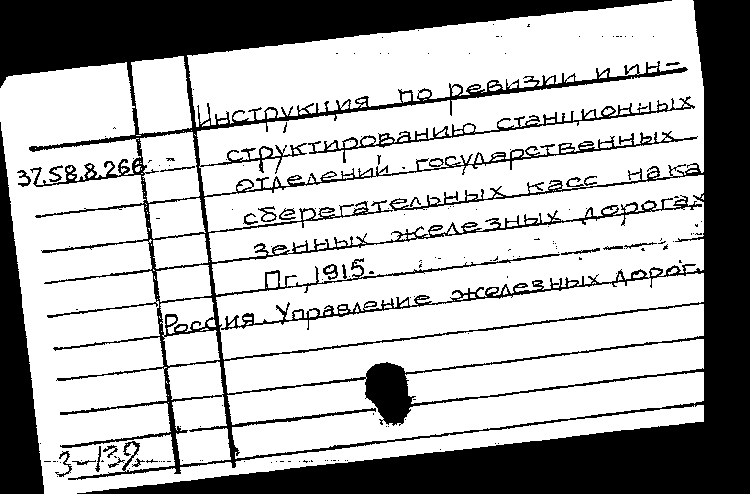 Инструкция по ревизии и ин-
структированию станционных
37.58.8.266
отделений государственных
сберегательных касс на ка
зенных железных дорогах
Пг., 1915.
Россия. Управление железных дорог.
3-139